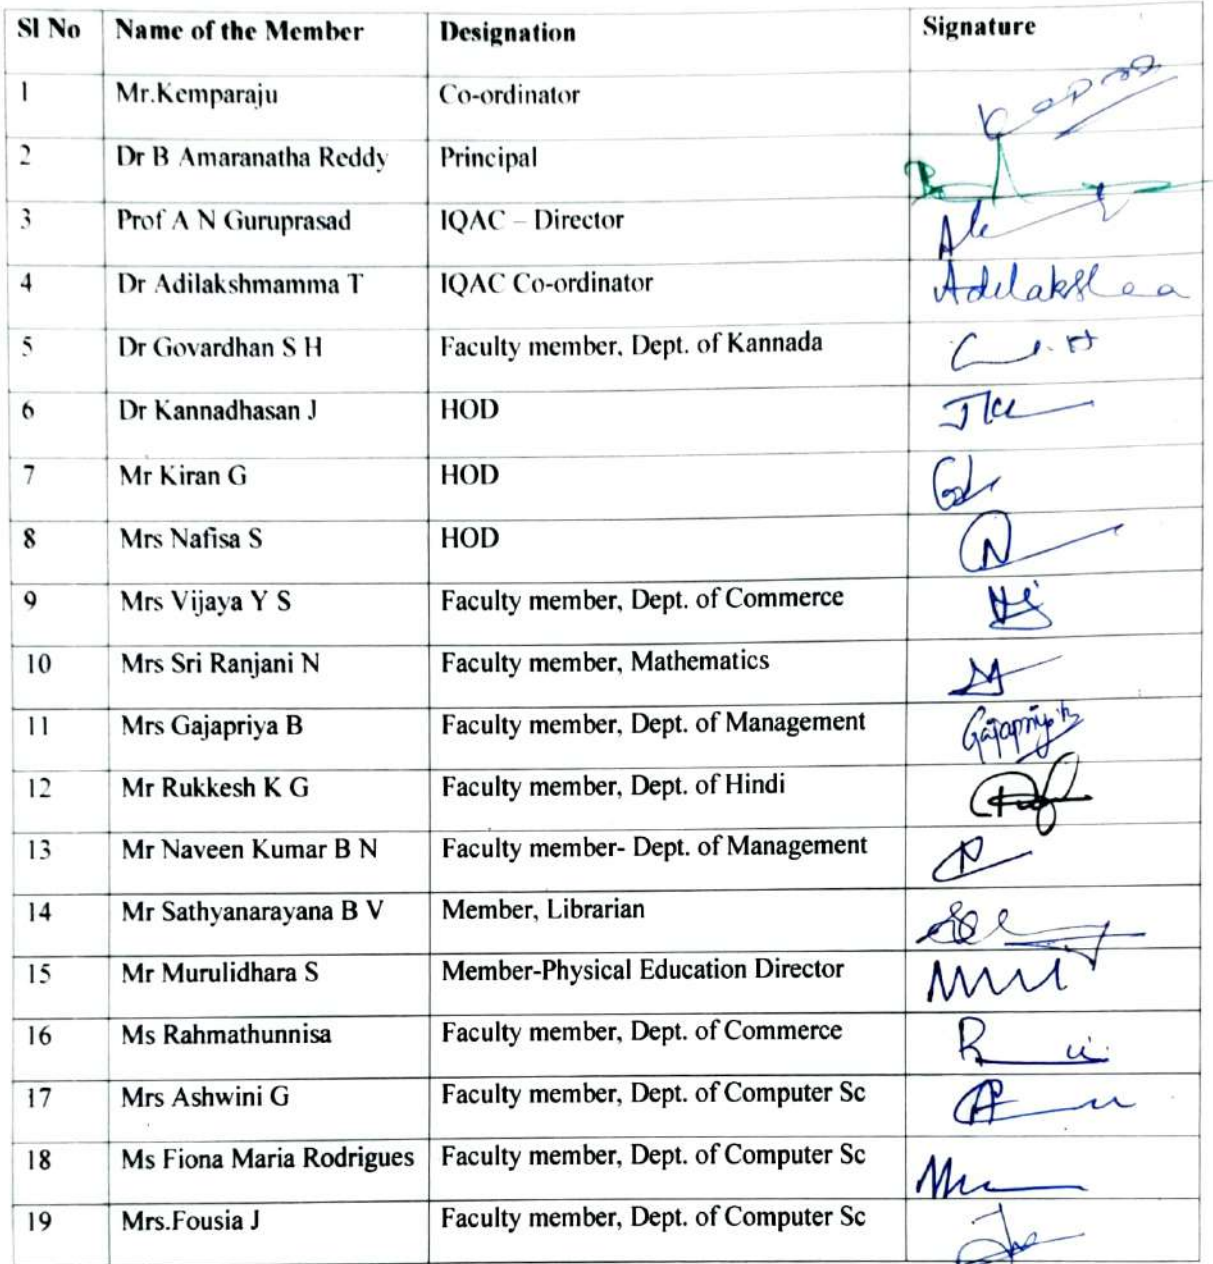 Sl No Name of the Member Designation Signature
1 Mr.Kemparaju Co-ordinator
2 Dr B Amaranatha Reddy Principal
3 Prof A N Guruprasad IQAC – Director
4 Dr Adilakshmamma T IQAC Co-ordinator
5 Dr Govardhan S H Faculty member, Dept. of Kannada
6 Dr Kannadhasan J HOD
7 Mr Kiran G HOD
8 Mrs Nafisa S HOD
9 Mrs Vijaya Y S Faculty member, Dept. of Commerce
10 Mrs Sri Ranjani N Faculty member, Mathematics
11 Mrs Gajapriya B Faculty member, Dept. of Management Gajapriya B
12 Mr Rukkesh K G Faculty member, Dept. of Hindi
13 Mr Naveen Kumar B N Faculty member- Dept. of Management
14 Mr Sathyanarayana B V Member, Librarian
15 Mr Murulidhara S Member-Physical Education Director
16 Ms Rahmathunnisa Faculty member, Dept. of Commerce
17 Mrs Ashwini G Faculty member, Dept. of Computer Sc
18 Ms Fiona Maria Rodrigues Faculty member, Dept. of Computer Sc
19 Mrs.Fousia J Faculty member, Dept. of Computer Sc